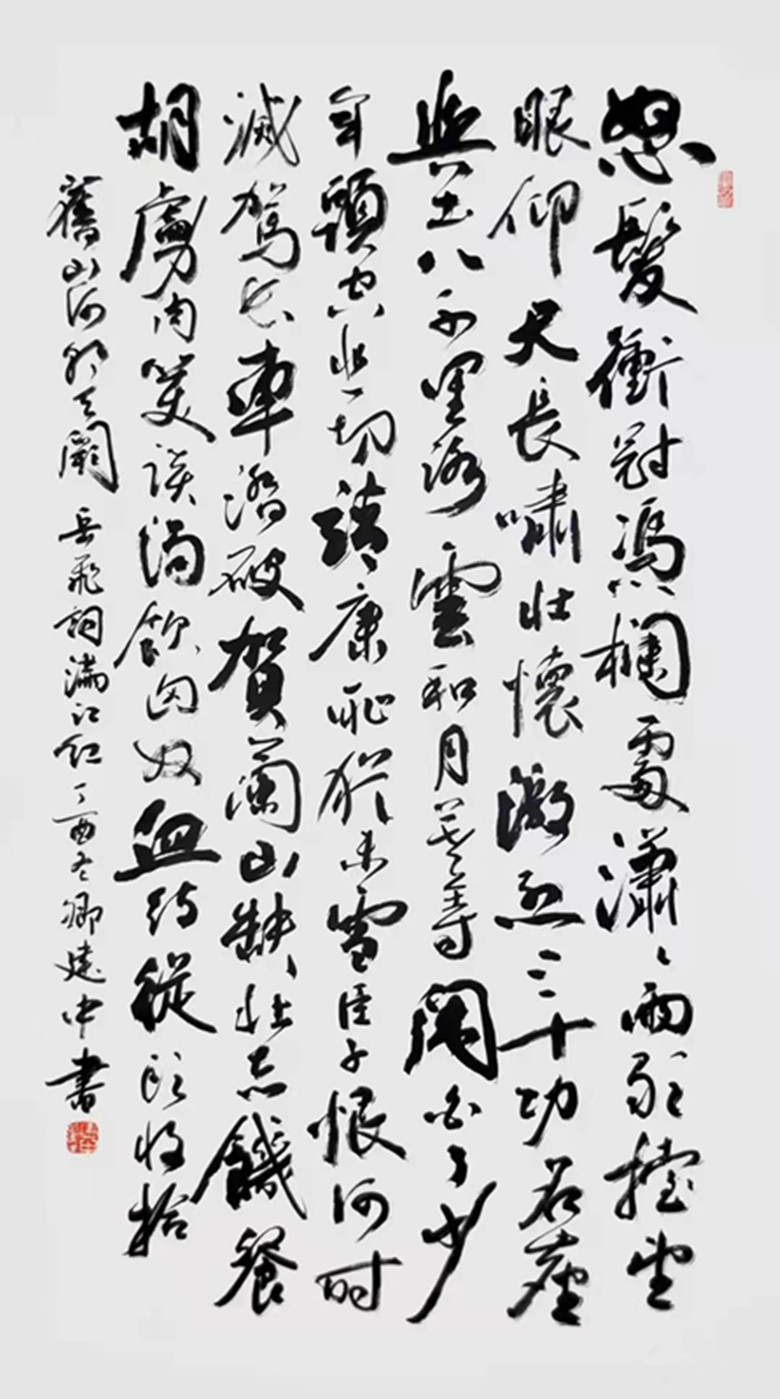 怒髮衝冠馮欄處瀟瀟雨歇擡望
眼仰天長嘯壯懷激烈三十功名塵
與土八千里路雲和月莫等閑白了少
年頭空悲切靖康恥猶未雪臣子恨何時
滅駕長車踏破賀蘭山缺壯志饑餐
胡虜肉笑談渴飲匈奴血待從頭收拾
舊山河朝天闕 岳飛詞滿江紅丁酉冬卿建中書